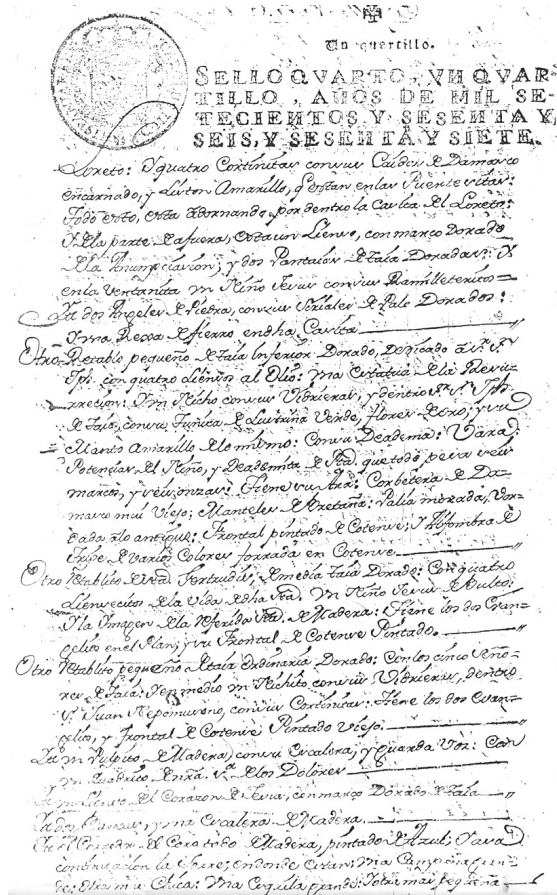 Un quartillo.
SELLO QVARTO, VN QVAR-
TILLO, AÑOS DE MIL SE-
TECIENTOS Y SESENTA Y
SEIS, Y SESENTA Y SIETE.
Loreto: Y quatro Cortinitas con sus Caídas de Damasco
encarnado, y Liston Amarillo, q. estan en las Puentesitas:
Todo esto, esta adornando por dentro la Casita de el Loreto:
Y de la parte de afuera, esta un Lienso, con marco Dorado
de la Anunpciacion, y dos Pantallas de talla Doradas: Y
en la Ventanita un Niño Jesus con sus Ramilleteritos =
Yt. dos Angeles de Piedra, con sus Siriales de Palo Dorados:
Y una Rexa de fierro en dha. Casita
Otro Retablo pequeño de talla Inferior Dorado, Dedicado a
Sr. Sn. Jph. con quatro Liensos al Olio: una Estatua de la Resu-
rreccion: Y un Nicho con sus Vidrieras, y dentro Sr. Sn. Jph.
de talla, con su Tunica de Lustrina Verde, flores de oro; y su
Manto Amarillo de lo mismo: Con su Deadema: Vara,
Potencias de el Niño, y Deademita de Sta. que todo pesa seis
marcos, y seis onzas: Tiene su Ara: Corbetera de Da-
masco mui Viejo; Manteles de Bretaña: Palia morada, Bor-
dada a lo antiguo: Frontal pintado de Cotense; Y Alfombra de
Tripe de Varios Colores forrada en Cotense
Otro Retablito de Sta. Gertrudis, de media talla Dorado: Con quatro
Liensecitos de la Vida de dha. Sta. Un Niño Jesus de Bulto:
Y la Imagen de la Referida Sta. de Madera: Tiene los dos Evan-
gelios en el Plan; y su Frontal de Cotense Pintado.
Otro Retablito pequeño de talla Ordinaria Dorado: Con los cinco Seño-
res de talla: Y en medio un Nichito con sus Vidrieras, dentro
Sn. Juan Nepomuseno, con sus Cortinitas: Tiene los dos Evan-
gelios, y frontal de Cotense Pintado Viejo.
Yt. un Pulpito de Madera, con su Escalera, y guarda Voz: Con
un Quadrito de Nra. Sa. de los Dolores
Yt. un Lienso de el Corazon de Jesus, con marco Dorado de talla
Yt. dos y una Escalera de Madera.
Yt. el de el Coro todo de Madera, pintado de Azul; Y a su
continuacion la torre, en donde estan: Una Campana
otra mas Chica: Una Esquila grande: Y otra mas pequeña